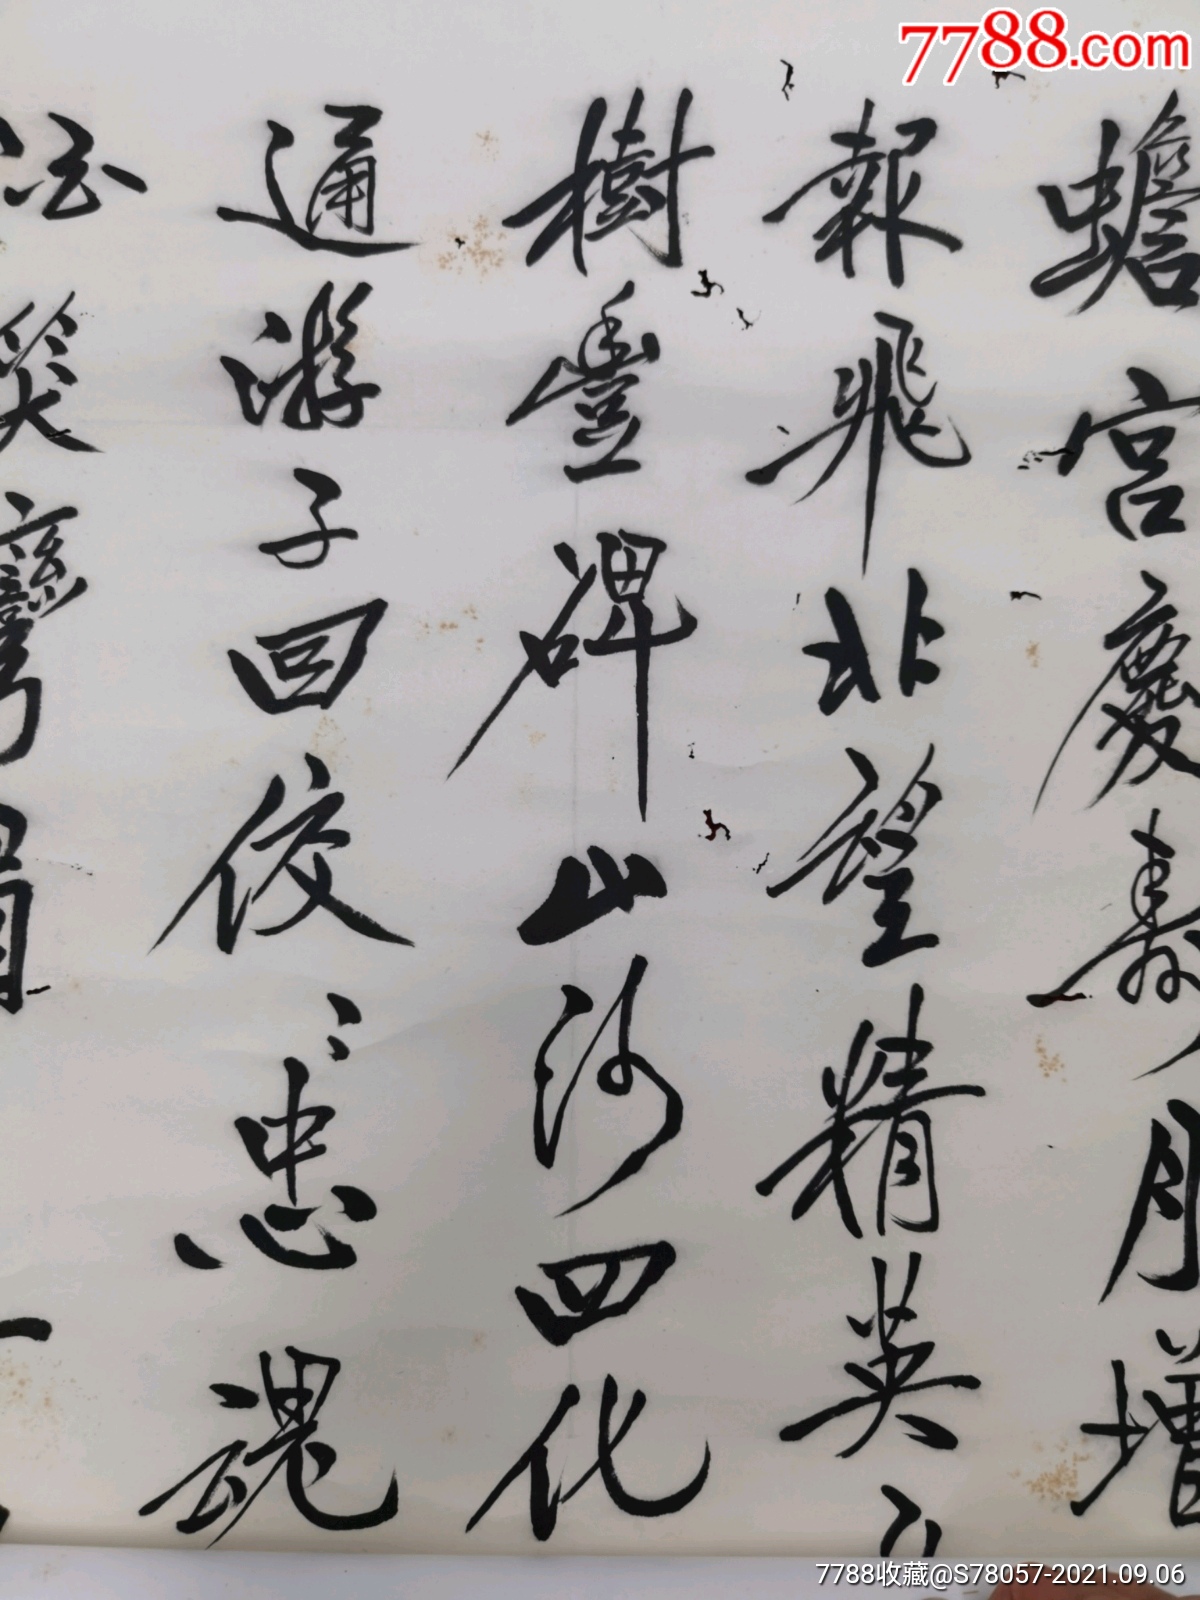 7788.com
蟾宫慶壽月增
報飛北望精英
樹豐碑山河四化
通游子回佼々忠魂
笑彎眉一
7788收藏@S78057-2021.09.06